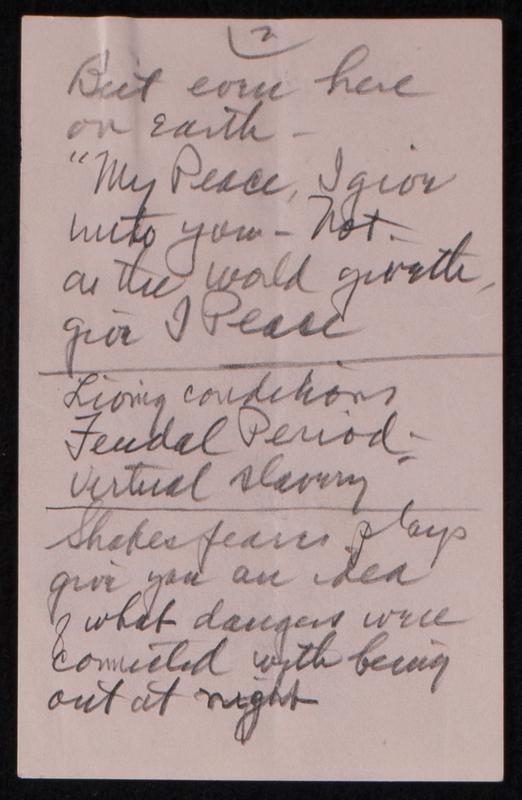 2
But even here
on Earth -
"My Peace, I give
unto you - Not -
as the world giveth,
give I Peace
Living conditions
Feudal Period -
Virtual slavery
Shakespeares plays
give you an idea
of what dangers were
connected with being
out at night